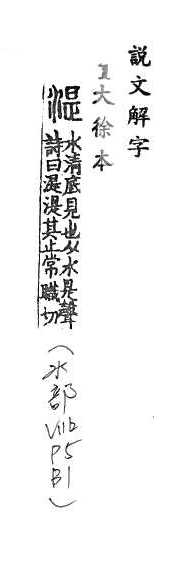 説文解字
1大徐本
湜
水清底見也从水是聲
詩曰湜湜其止常職切
(水部
VIIb
P5
B1)